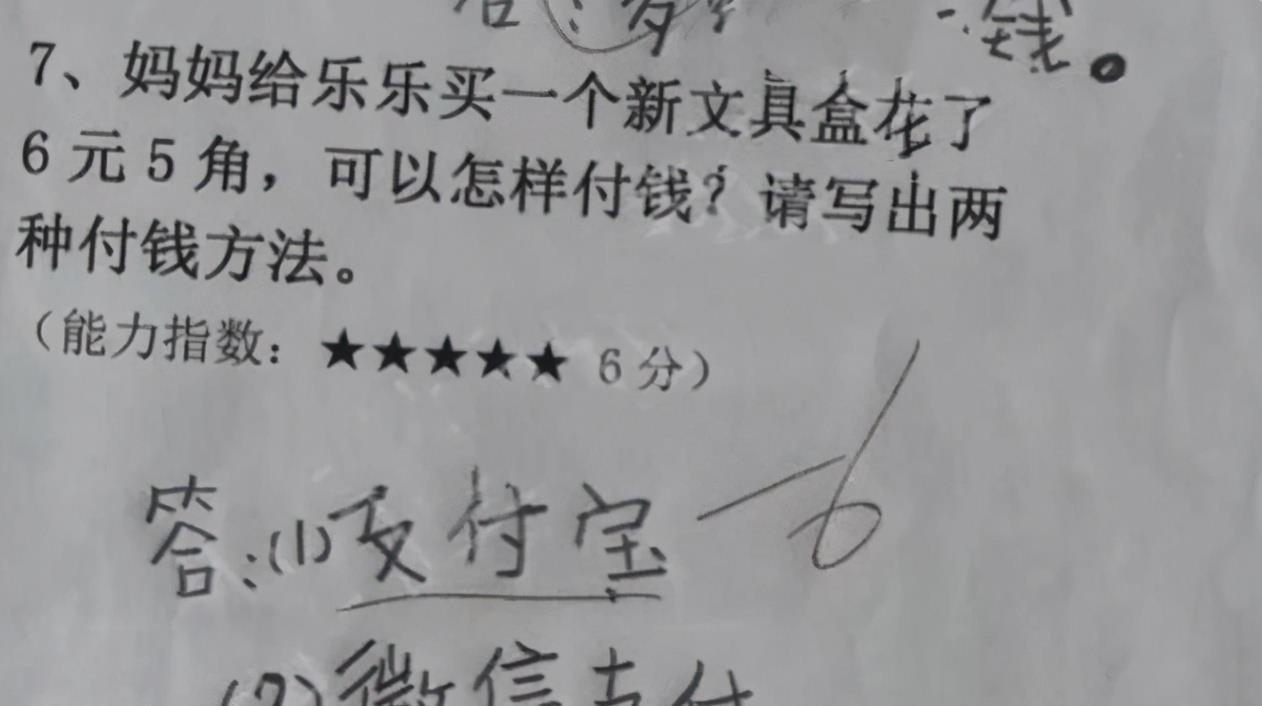 钱。
7、妈妈给乐乐买一个新文具盒花了
6元5角，可以怎样付钱？请写出两
种付钱方法。
（能力指数：★★★★★ 6分）
答:(1)支付宝 -6
(2)微信支付